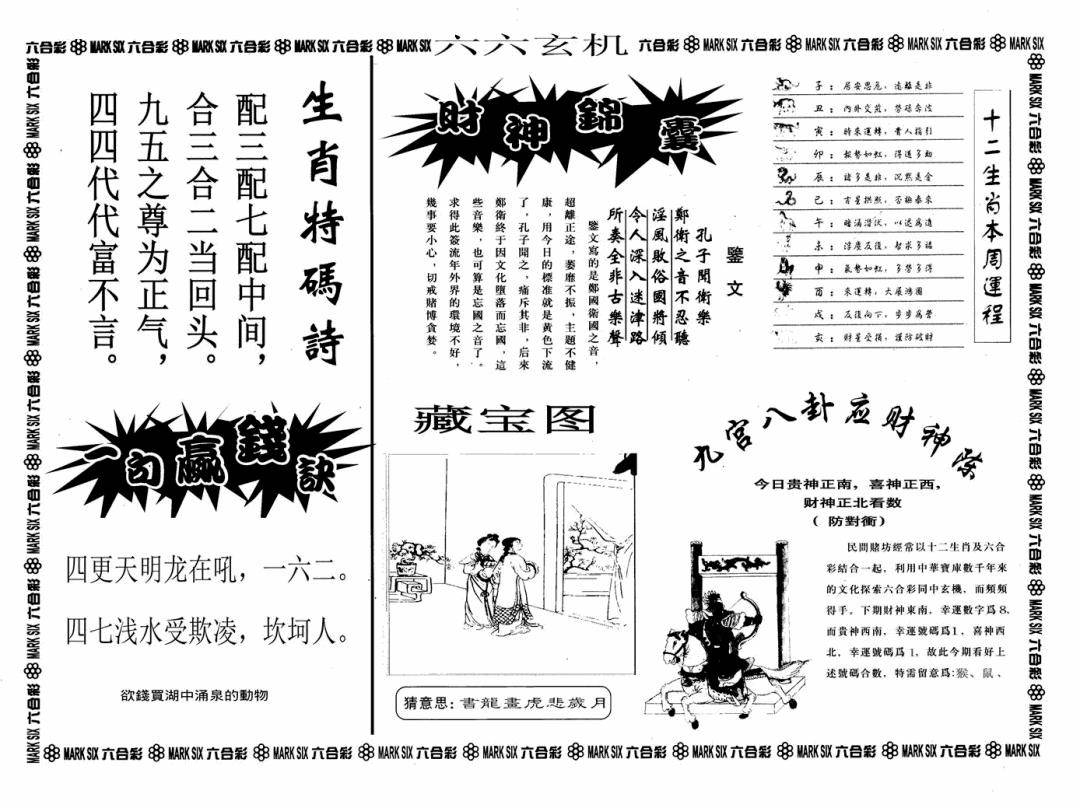 六六玄机
六合彩 MARK SIX 六合彩 MARK SIX 六合彩 MARK SIX 六合彩 MARK SIX
六合彩 MARK SIX 六合彩 MARK SIX 六合彩 MARK SIX 六合彩 MARK SIX
生肖特碼詩
配三配七配中间，
合三合二当回头。
九五之尊为正气，
四四代代富不言。
一句赢錢訣
四更天明龙在吼，一六二。
四七浅水受欺凌，坎坷人。
欲錢買湖中涌泉的動物
財神錦囊
鑒文
孔子聞衛樂
鄭衛之音不忍聽
淫風敗俗國將傾
令人深入迷津路
所奏全非古樂聲
鑒文寫的是鄭國衛國之音，
超離正途，萎靡不振，主題不健
康，用今日的標准就是黄色下流
了，孔子聞之，痛斥其非，后來
鄭衛終于因文化墮落而忘國，這
些音樂，也可算是忘國之音了。
求得此簽流年外界的環境不好，
幾事要小心，切戒賭博貪婪。
藏宝图
猜意思：書龍畫虎悲歲月
十二生肖本周運程
子：居安思危，遠離是非
丑：内外交煎，勞碌奔波
寅：時來運轉，貴人指引
卯：
辰：諸多是非，沉默是金
巳：
午：
未：
申：氣勢如虹，多勞多得
酉：來運轉，大展鴻圖
戌：
亥：財星受損，謹防破財
九宫八卦应财神
今日贵神正南，喜神正西，
财神正北看数
（防對衝）
民間賭坊經常以十二生肖及六合
彩結合一起，利用中華寶庫數千年來
的文化探索六合彩同中玄機，而頻頻
得手。下期財神東南，幸運數字爲8.
而貴神西南，幸運號碼爲1，喜神西
北，幸運號碼爲1，故此今期看好上
述號碼合數，特需留意爲:猴、鼠、
MARK SIX 六合彩 MARK SIX 六合彩 MARK SIX 六合彩 MARK SIX 六合彩 MARK SIX 六合彩 MARK SIX 六合彩 MARK SIX 六合彩 MARK SIX 六合彩 MARK SIX 六合彩 MARK SIX